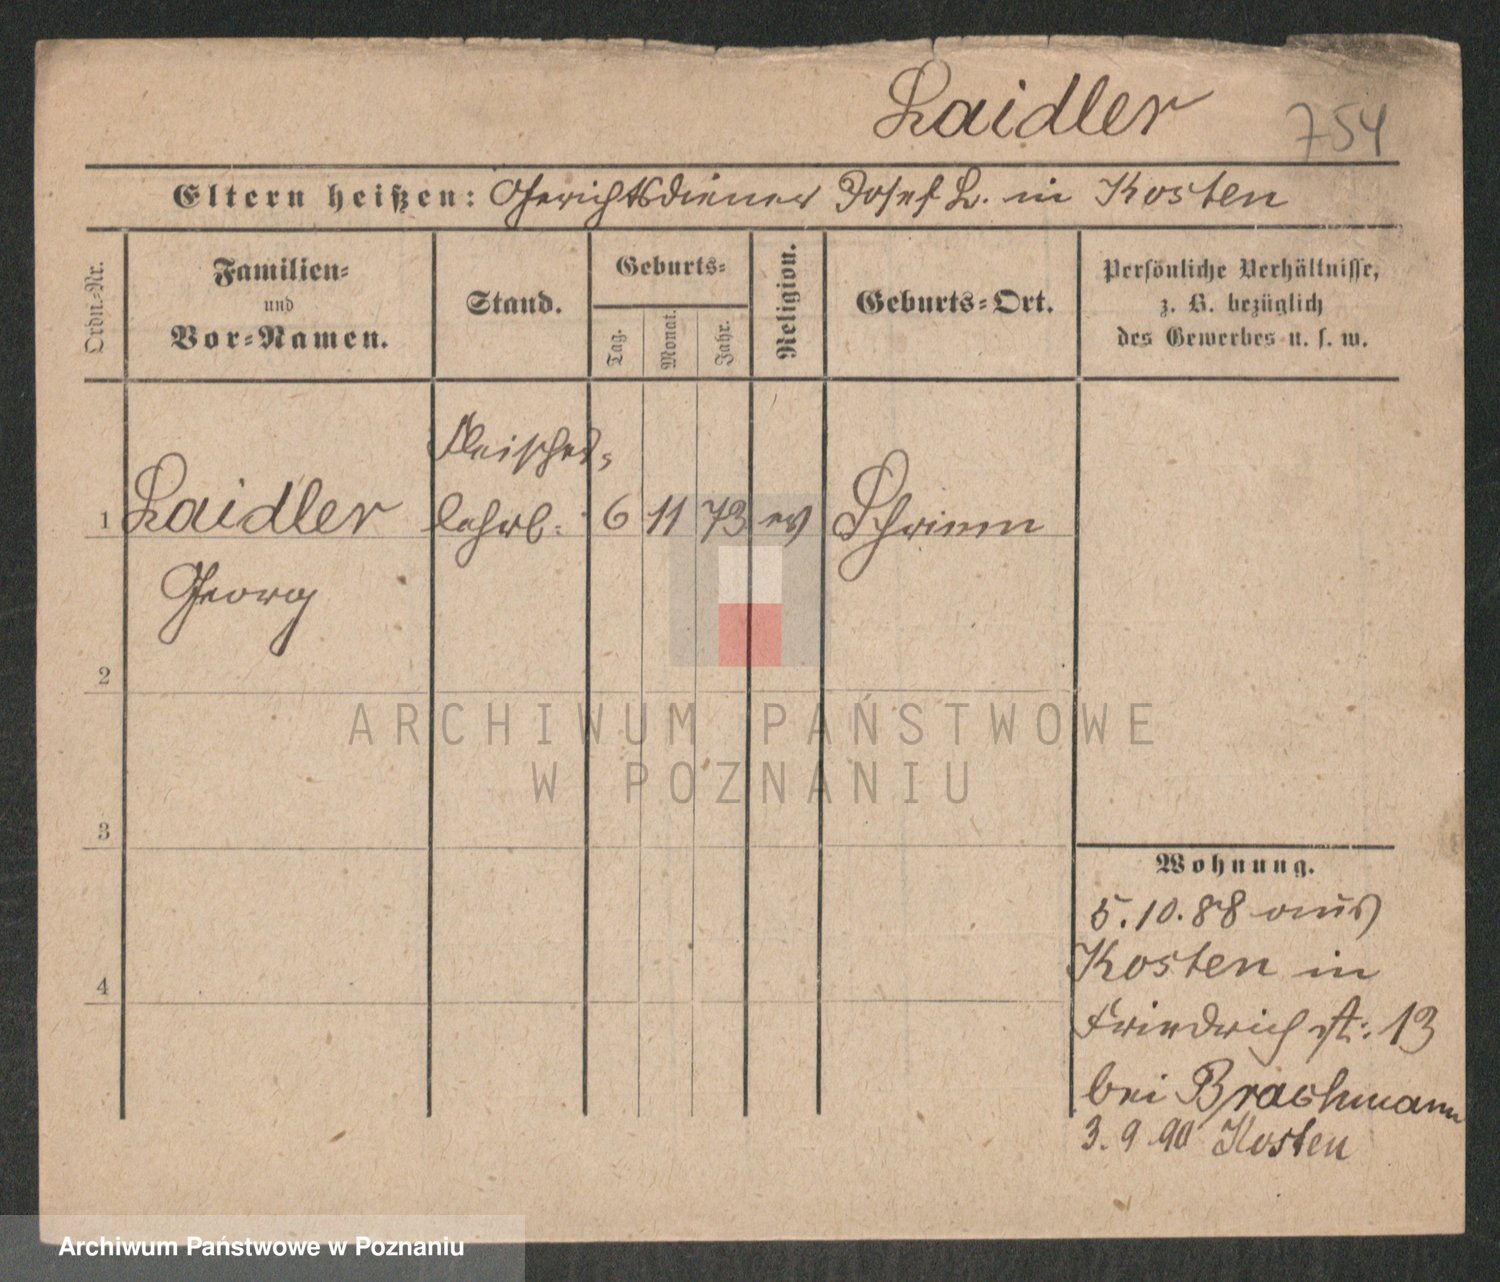 Laidler 754
Eltern heißen: Gerichtsdiener Josef L. in Kosten
Ordn.=Nr.
Familien=
und
Vor=Namen.
Stand.
Geburts=
Tag.
Monat.
Jahr.
Religion.
Geburts=Ort.
Persönliche Verhältnisse,
z. B. bezüglich
des Gewerbes u. s. w.
Fleischer=
1 Laidler lehrl: 6 11 73 ev Schrimm
Georg
2
3
4
Wohnung.
5.10.88 aus
Kosten in
Friedrich st: 13
bei Brachmann
3.9.90 Kosten
ARCHIWUM PAŃSTWOWE
W POZNANIU
Archiwum Państwowe w Poznaniu